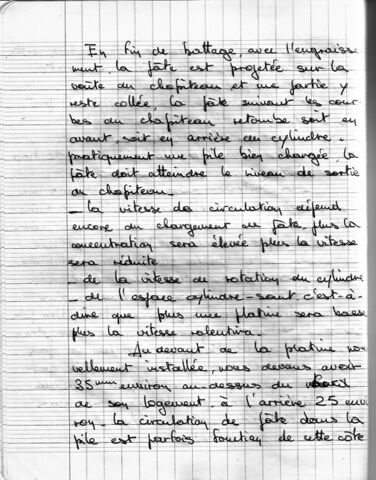 En fin de battage avec l'engraisse-
ment, la pâte est projetée sur la
voûte du chapiteau et une partie y
reste collée, la pâte suivant les cour-
bes du chapiteau retombe soit en
avant, soit en arrière du cylindre.
pratiquement une pile bien chargée, la
pâte doit atteindre le niveau de sortie
du chapiteau.
- la vitesse de circulation dépend
encore du chargement en pâte, plus la
concentration sera élevée plus la vitesse
sera réduite
- de la vitesse de rotation du cylindre
- de l'espace cylindre-saut. c'est-à-
dire que plus une platine sera basse
plus la vitesse ralentira.
Au devant de la platine nou
vellement installée, nous devons avoir
35mm environ au-dessus du
de son logement. à l'arrière 25 envi
ron. la circulation de pâte dans la
pile est parfois fonction de cette côte